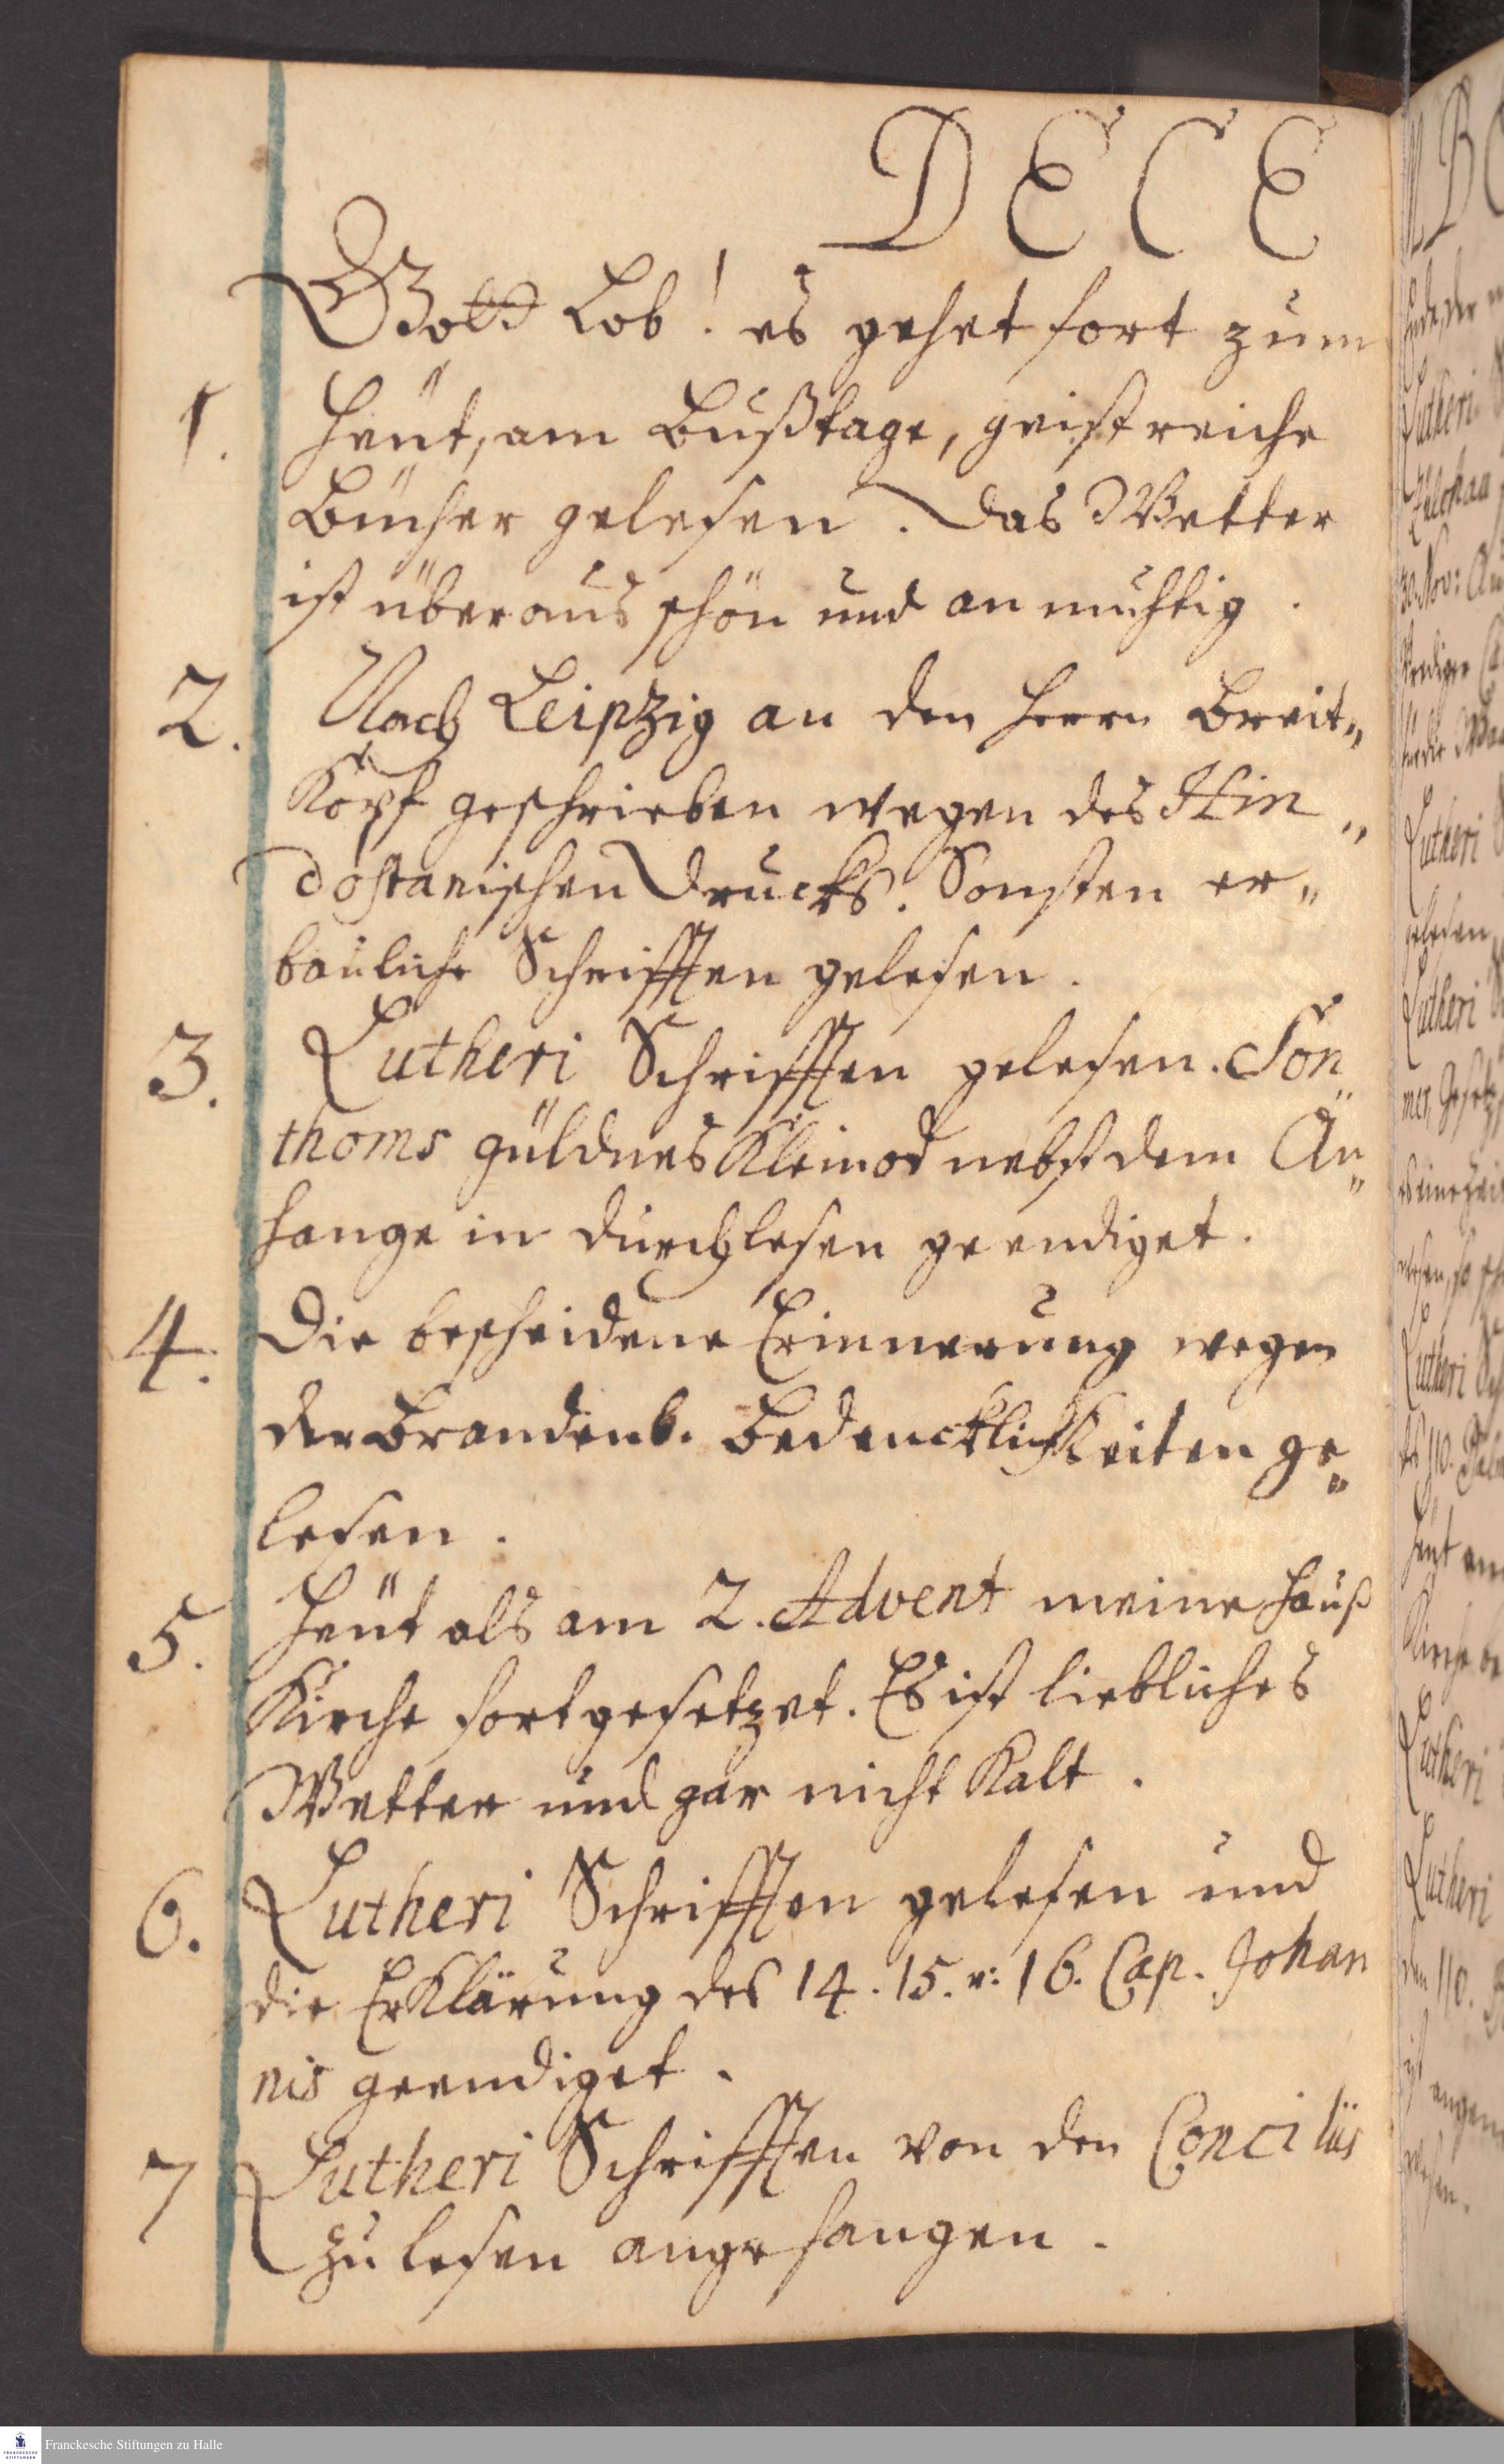 DECE
Gott Lob! es gehet fort zum
1. Heut, am Bußtage, geistreiche
Bücher gelesen. Das Wetter
ist überaus schön und anmuhtig.
2. Nach Leipzig an den Herrn Breit„
Kopf geschrieben wegen des Hin„
dostanischen Drucks. Sonsten er„
bauliche Schrifften gelesen.
3. Lutheri Schrifften gelesen. Son„
thoms güldnes Kleinod nebst dem An„
hange in durchlesen geendiget.
4. Die bescheidene Erinnerung wegen
der Brandenb. Bedencklichkeiten ge„
lesen.
5. Heüt als am 2. Advent meine Hauß
Kirche fortgesetzet. Es ist liebliches
Wetter und gar nicht Kalt.
6. Lutheri Schrifften gelesen und
die Erklärung des 14. 15. u: 16. Cap. Johan
nis geendiget.
7 Lutheri Schrifften von den Conciliis
zu lesen angefangen.
Franckesche Stiftungen zu Halle